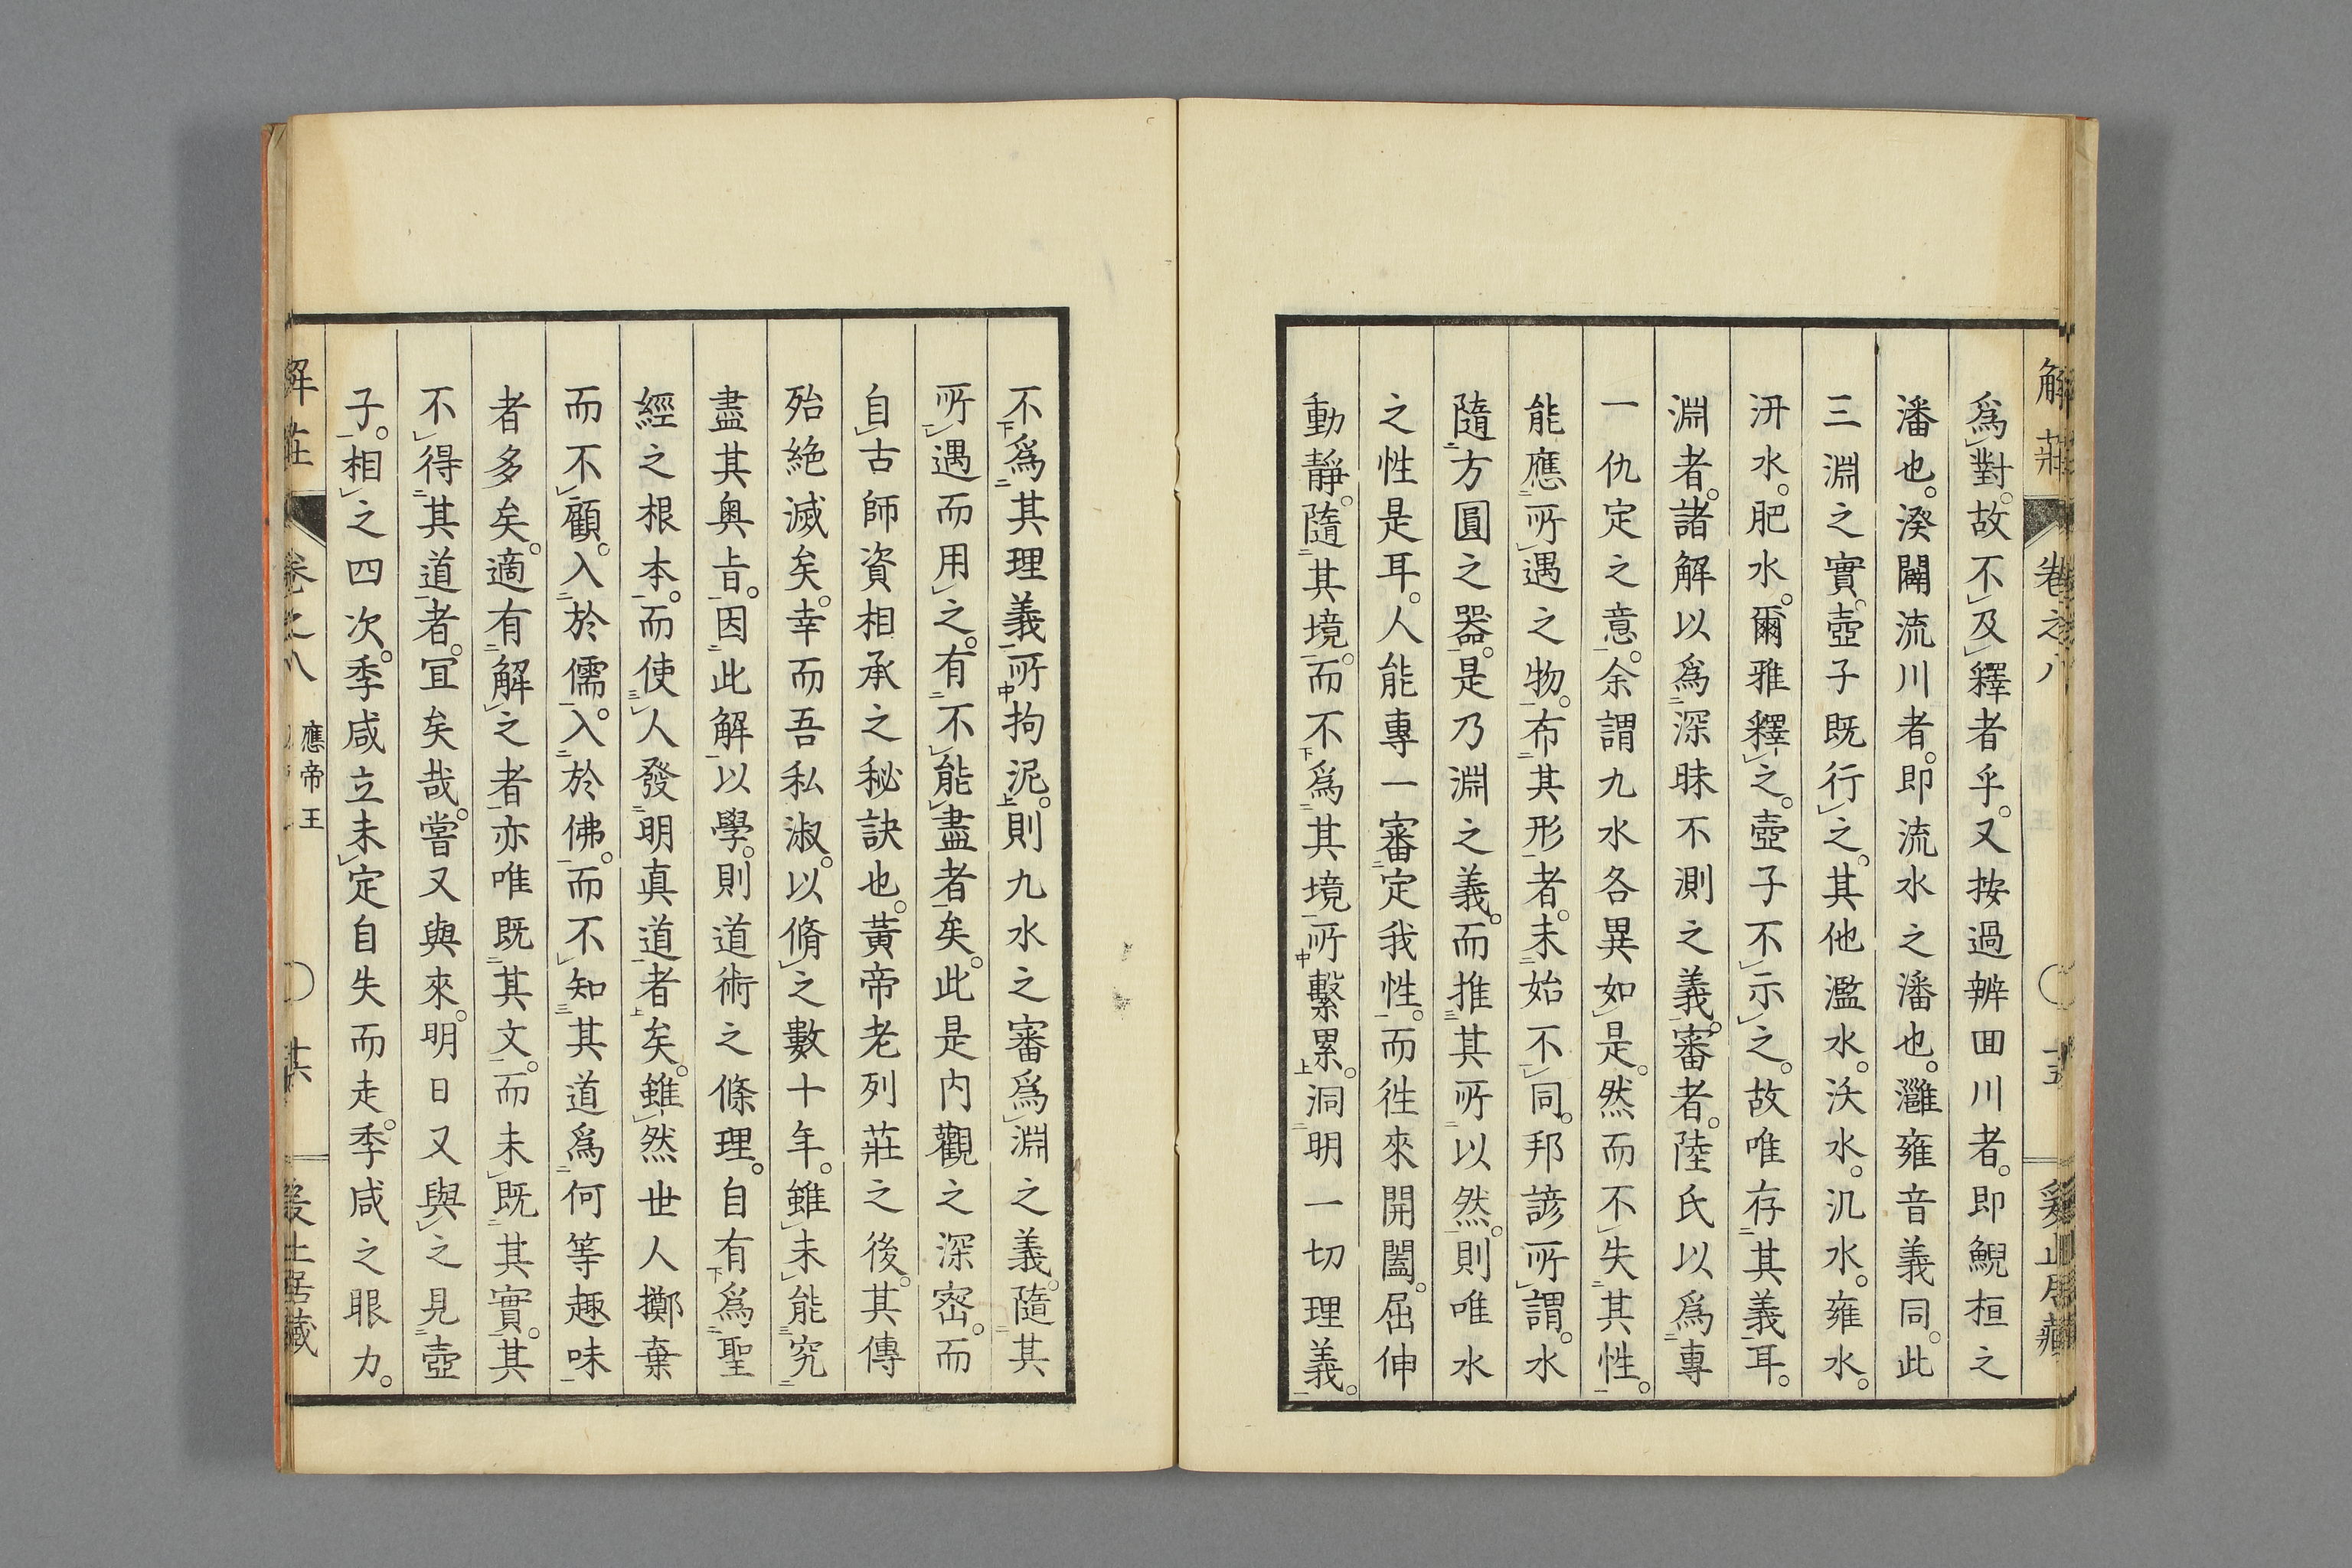 解莊 卷之八 〇 十五
爲對。故不及釋者乎。又按過辨囬川者。即鯢桓之
潘也。湀闢流川者。即流水之潘也。灉雍音義同。此
三淵之實。壺子既行之。其他濫水。沃水。氿水。雍水。
汧水。肥水。爾雅釋之。壺子不示之。故唯存其義耳。
淵者。諸解以爲深昧不測之義。審者。陸氏以爲專
一仇定之意。余謂九水各異如是。然而不失其性。
能應所遇之物。布其形者。未始不同。邦諺所謂。水
隨方圓之器。是乃淵之義。而推其所以然。則唯水
之性是耳。人能專一審定我性。而徃來開闔。屈伸
動靜。隨其境。而不爲其境所繫累。洞明一切理義。
不爲其理義所拘泥。則九水之審爲淵之義。隨其
所遇而用之。有不能盡者矣。此是内觀之深密。而
自古師資相承之秘訣也。黃帝老列莊之後。其傳
殆絶滅矣。幸而吾私淑。以脩之數十年。雖未能究
盡其奥旨。因此解以學。則道術之條理。自有爲聖
經之根本。而使人發明真道者矣。雖然世人擲棄
而不顧。入於儒。入於佛。而不知其道爲何等趣味
者多矣。適有解之者。亦唯既其文。而未既其實。其
不得其道者。冝矣哉。嘗又與來。明日又與之見壺
子。相之四次。季咸立未定自失而走。季咸之眼力。
解莊 卷之八 應帝王 〇 廿六